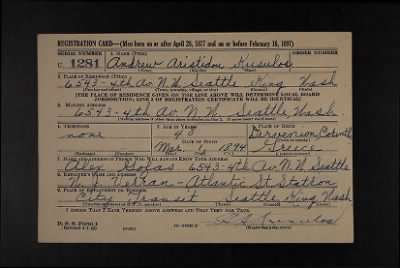 REGISTRATION CARD—(Men born on or after April 28, 1877 and on or before February 16, 1897)
SERIAL NUMBER 1. NAME (Print) ORDER NUMBER
U 1281 Andrew Aristidou Kusulos
2. PLACE OF RESIDENCE (Print)
6543-4th Av. N.W. Seattle King Wash
(THE PLACE OF RESIDENCE GIVEN ON THE LINE ABOVE WILL DETERMINE LOCAL BOARD
JURISDICTION; LINE 2 OF REGISTRATION CERTIFICATE WILL BE IDENTICAL)
3. MAILING ADDRESS
6543-4th Av. N.W. Seattle, Wash
4. TELEPHONE 5. AGE IN YEARS 6. PLACE OF BIRTH
none 48
DATE OF BIRTH
Mar. 1 1894 Greece
7. NAME AND ADDRESS OF PERSON WHO WILL ALWAYS KNOW YOUR ADDRESS
Alex 6543-4th Av. N.W. Seattle
8. EMPLOYER'S NAME AND ADDRESS
Atlantic St. Station
9. PLACE OF EMPLOYMENT OR BUSINESS
City Transit Seattle King Wash
I AFFIRM THAT I HAVE VERIFIED ABOVE ANSWERS AND THAT THEY ARE TRUE.
D. S. S. Form 1
Kusulos